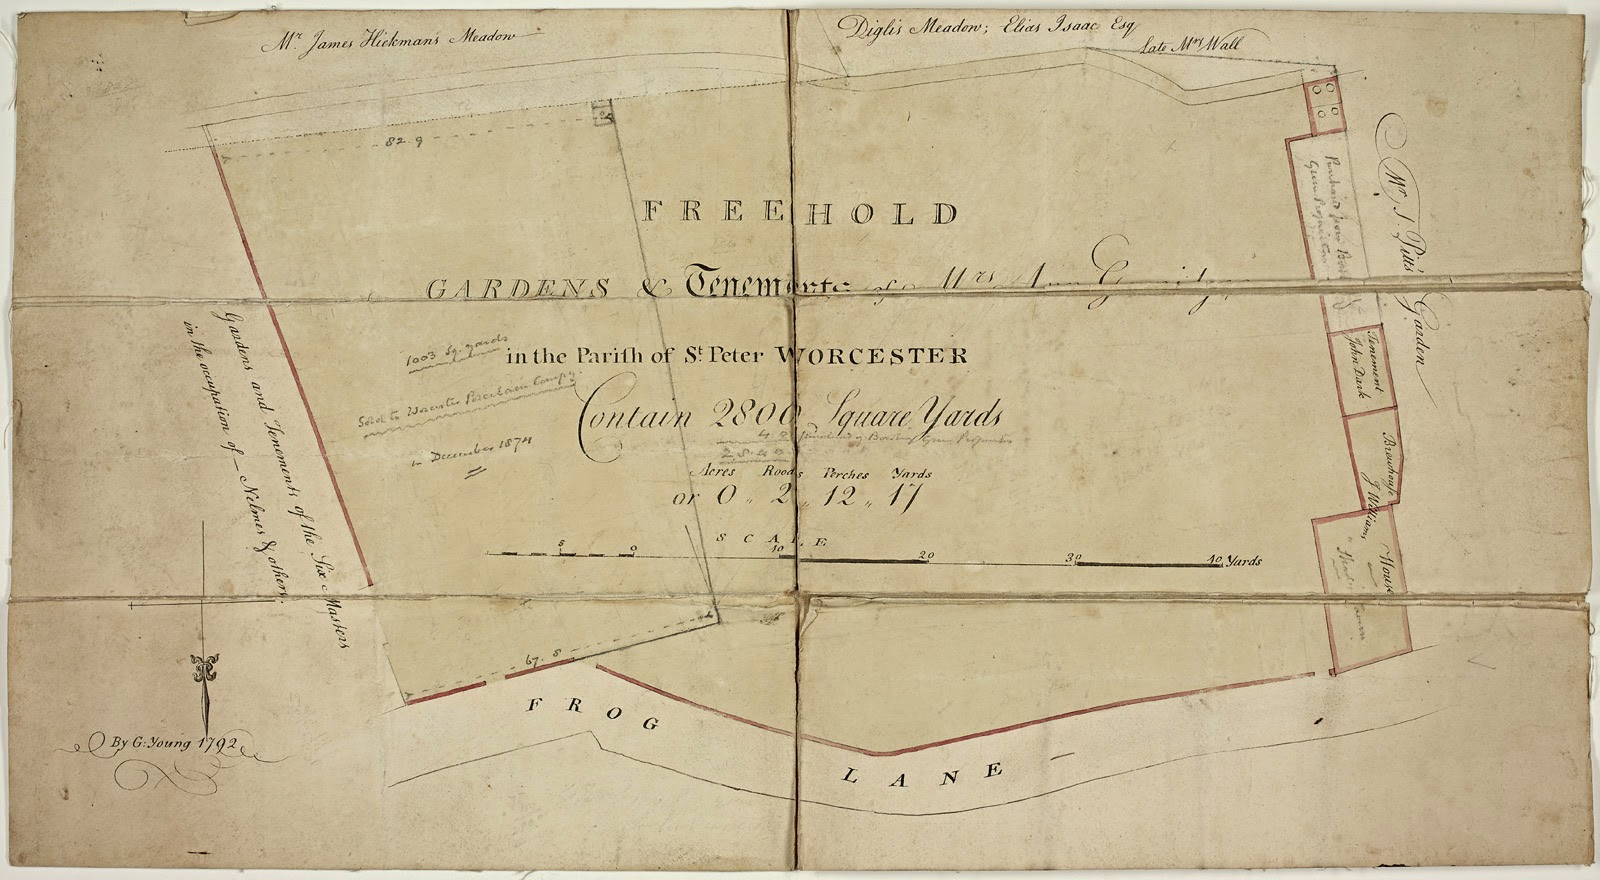 Mr. James Hickman's Meadow
Diglis Meadow; Elias Isaac Esq
Late Mrs Wall
82.9
FREEHOLD
GARDENS & Tenements of Mrs Ann
in the Parish of St. Peter WORCESTER
Contain 2800 Square Yards
40 Purchased of Bowling Green Proprietors
2840
Acres Roods Perches Yards
or 0 „ 2 „ 12 „ 17
SCALE
5 0 10 20 30 40 Yards
1003 Sq. yards
Sold to Worcester Porcelain Compy.
in December 1874
Gardens and Tenements of the Six Masters
in the occupation of – Nelmes & others.
67.8
FROG LANE
By G: Young 1792
Mr. S. Pitt's Garden
Purchased from Bowling
Green Proprietors
Tenement
John Dark
Brewhouse
J Williams
House